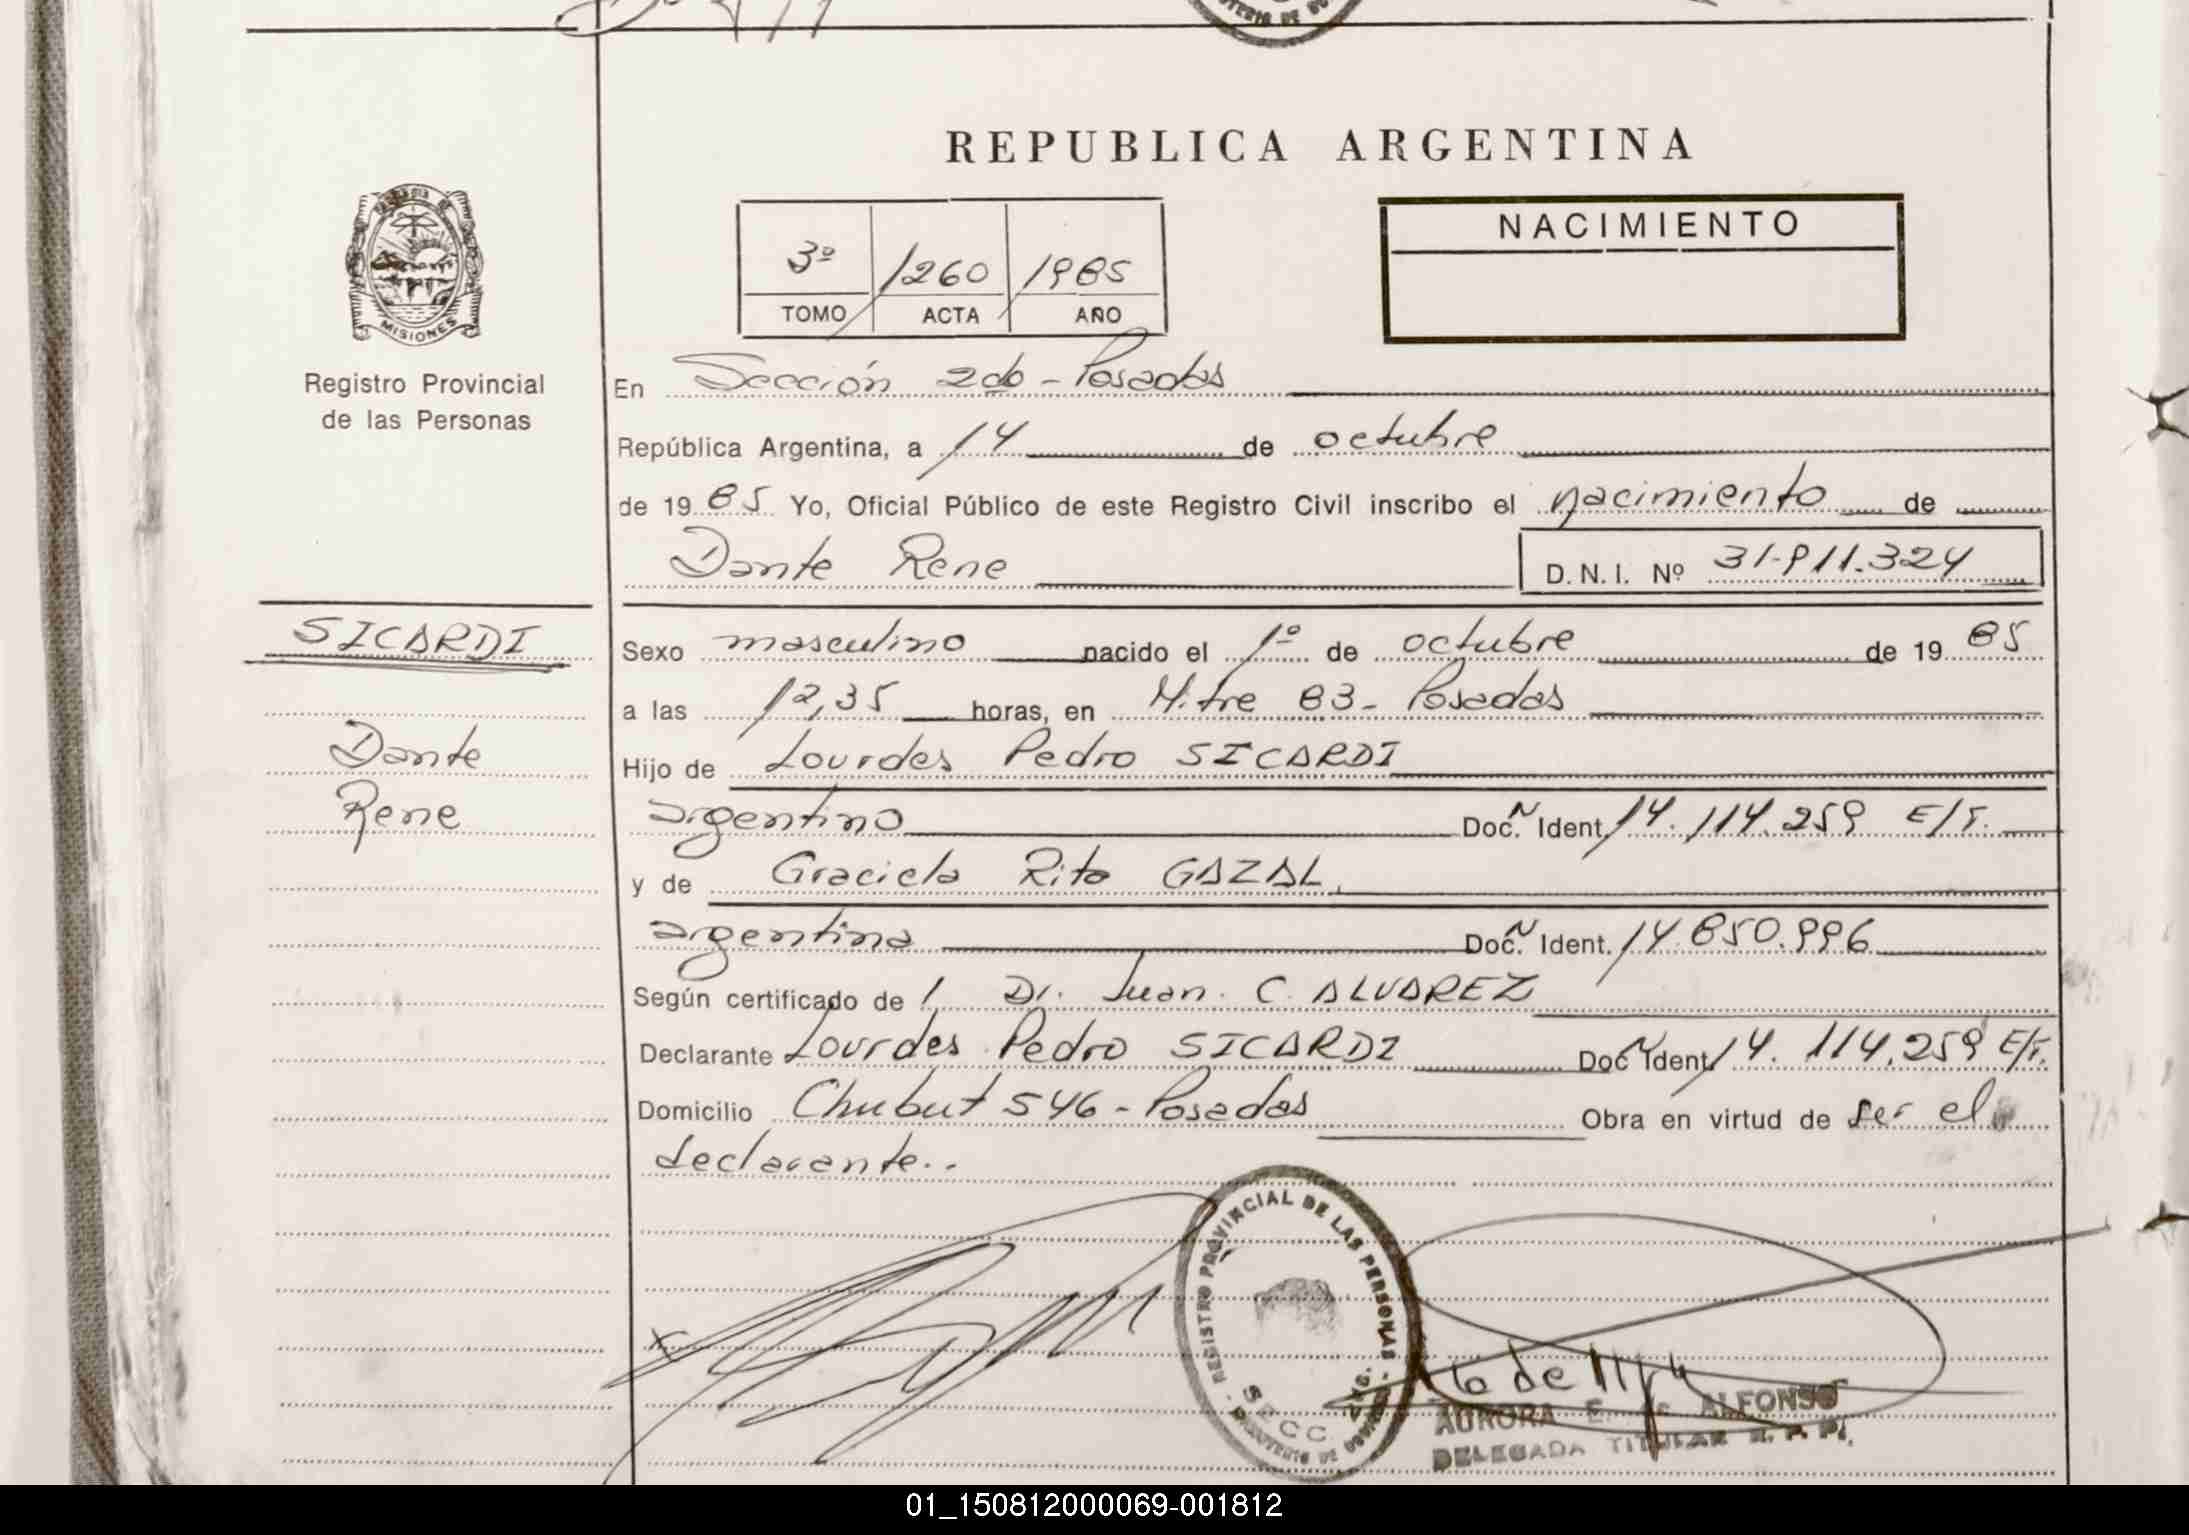 REPUBLICA ARGENTINA
MISIONES
Registro Provincial
de las Personas
3º 1260 1985
TOMO ACTA AÑO
NACIMIENTO
En Sección 2da - Posadas
República Argentina, a 14 de octubre
de 1985 Yo, Oficial Público de este Registro Civil inscribo el nacimiento de
Dante Rene D.N.I. Nº 31.911.324
SICARDI
Dante
Rene
Sexo masculino nacido el 1º de octubre de 1985
a las 12,35 horas, en Mitre 83 - Posadas
Hijo de Lourdes Pedro SICARDI
argentino Doc. Ident. 14.114.259 E/T.
y de Graciela Rita GAZAL
argentina Doc. Ident. 14.850.996
Según certificado de Dr. Juan C. ALVAREZ
Declarante Lourdes Pedro SICARDI Doc. Ident. 14.114.259 E/T.
Domicilio Chubut 546 - Posadas Obra en virtud de ser el
declarante..
REGISTRO PROVINCIAL DE LAS PERSONAS
SECC
AURORA E. de ALFONSO
DELEGADA TITULAR R. P. P.
01_150812000069-001812